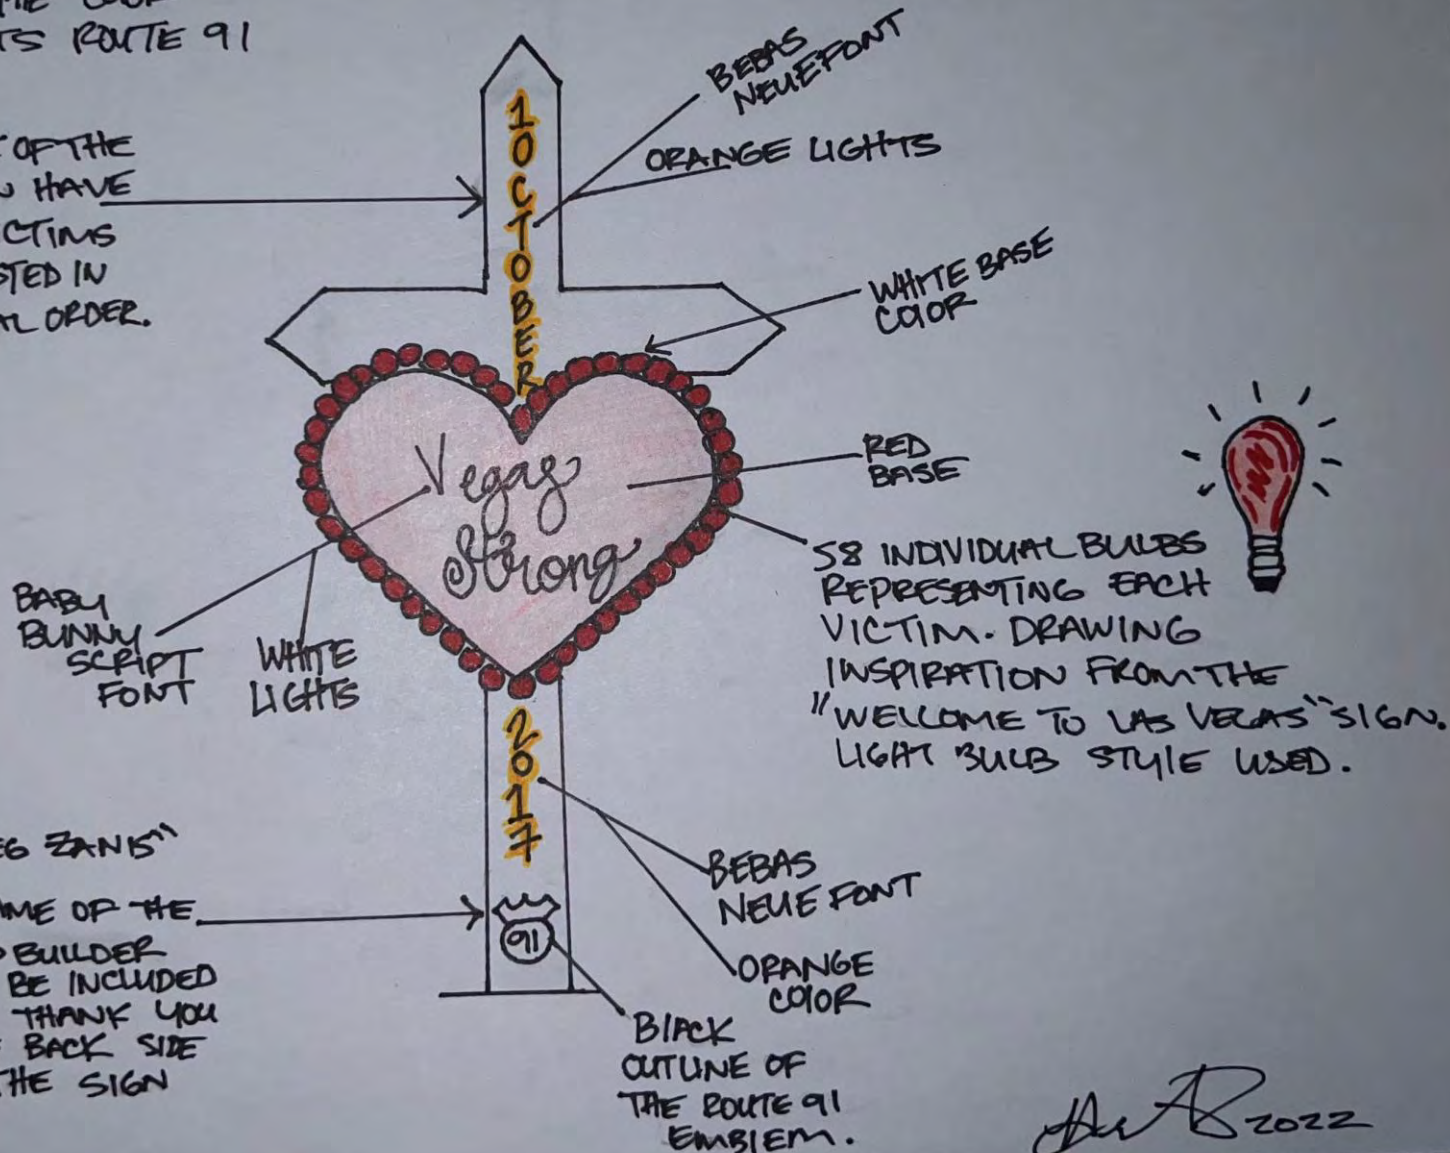 TS ROUTE 91
OF THE
HAVE
CTIMS
STED IN
AL ORDER.
1
O
C
T
O
B
E
R
BEBAS
NEUE FONT
ORANGE LIGHTS
WHITE BASE
COLOR
Vegas
Strong
RED
BASE
58 INDIVIDUAL BULBS
REPRESENTING EACH
VICTIM. DRAWING
INSPIRATION FROM THE
"WELCOME TO LAS VEGAS" SIGN.
LIGHT BULB STYLE USED.
BABY
BUNNY
SCRIPT
FONT
WHITE
LIGHTS
2
0
1
7
EG ZANIS"
AME OF THE
BUILDER
BE INCLUDED
THANK YOU
BACK SIDE
THE SIGN
91
BEBAS
NEUE FONT
ORANGE
COLOR
BLACK
OUTLINE OF
THE ROUTE 91
EMBLEM.
2022